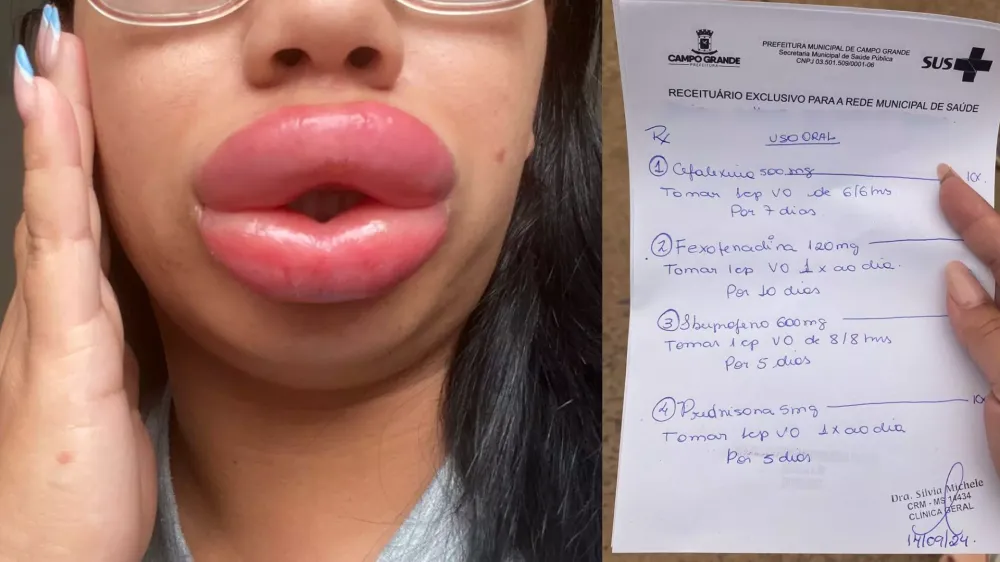 CAMPO GRANDE
PREFEITURA
PREFEITURA MUNICIPAL DE CAMPO GRANDE
Secretaria Municipal de Saúde Pública
CNPJ 03.501.509/0001-06
SUS
RECEITUÁRIO EXCLUSIVO PARA A REDE MUNICIPAL DE SAÚDE
Rx USO ORAL
1 Cefalexina 500mg 10x.
Tomar 1cp VO de 6/6hs
Por 7 dias
2 Fexofenadina 120mg
Tomar 1cp VO 1x ao dia.
Por 10 dias
3 Ibuprofeno 600mg
Tomar 1cp VO de 8/8hs
Por 5 dias
4 Prednisona 5mg 10
Tomar 1cp VO 1x ao dia
Por 5 dias
Dra. Silvia Michele
CRM - MS 14434
CLÍNICA GERAL
14/09/24.